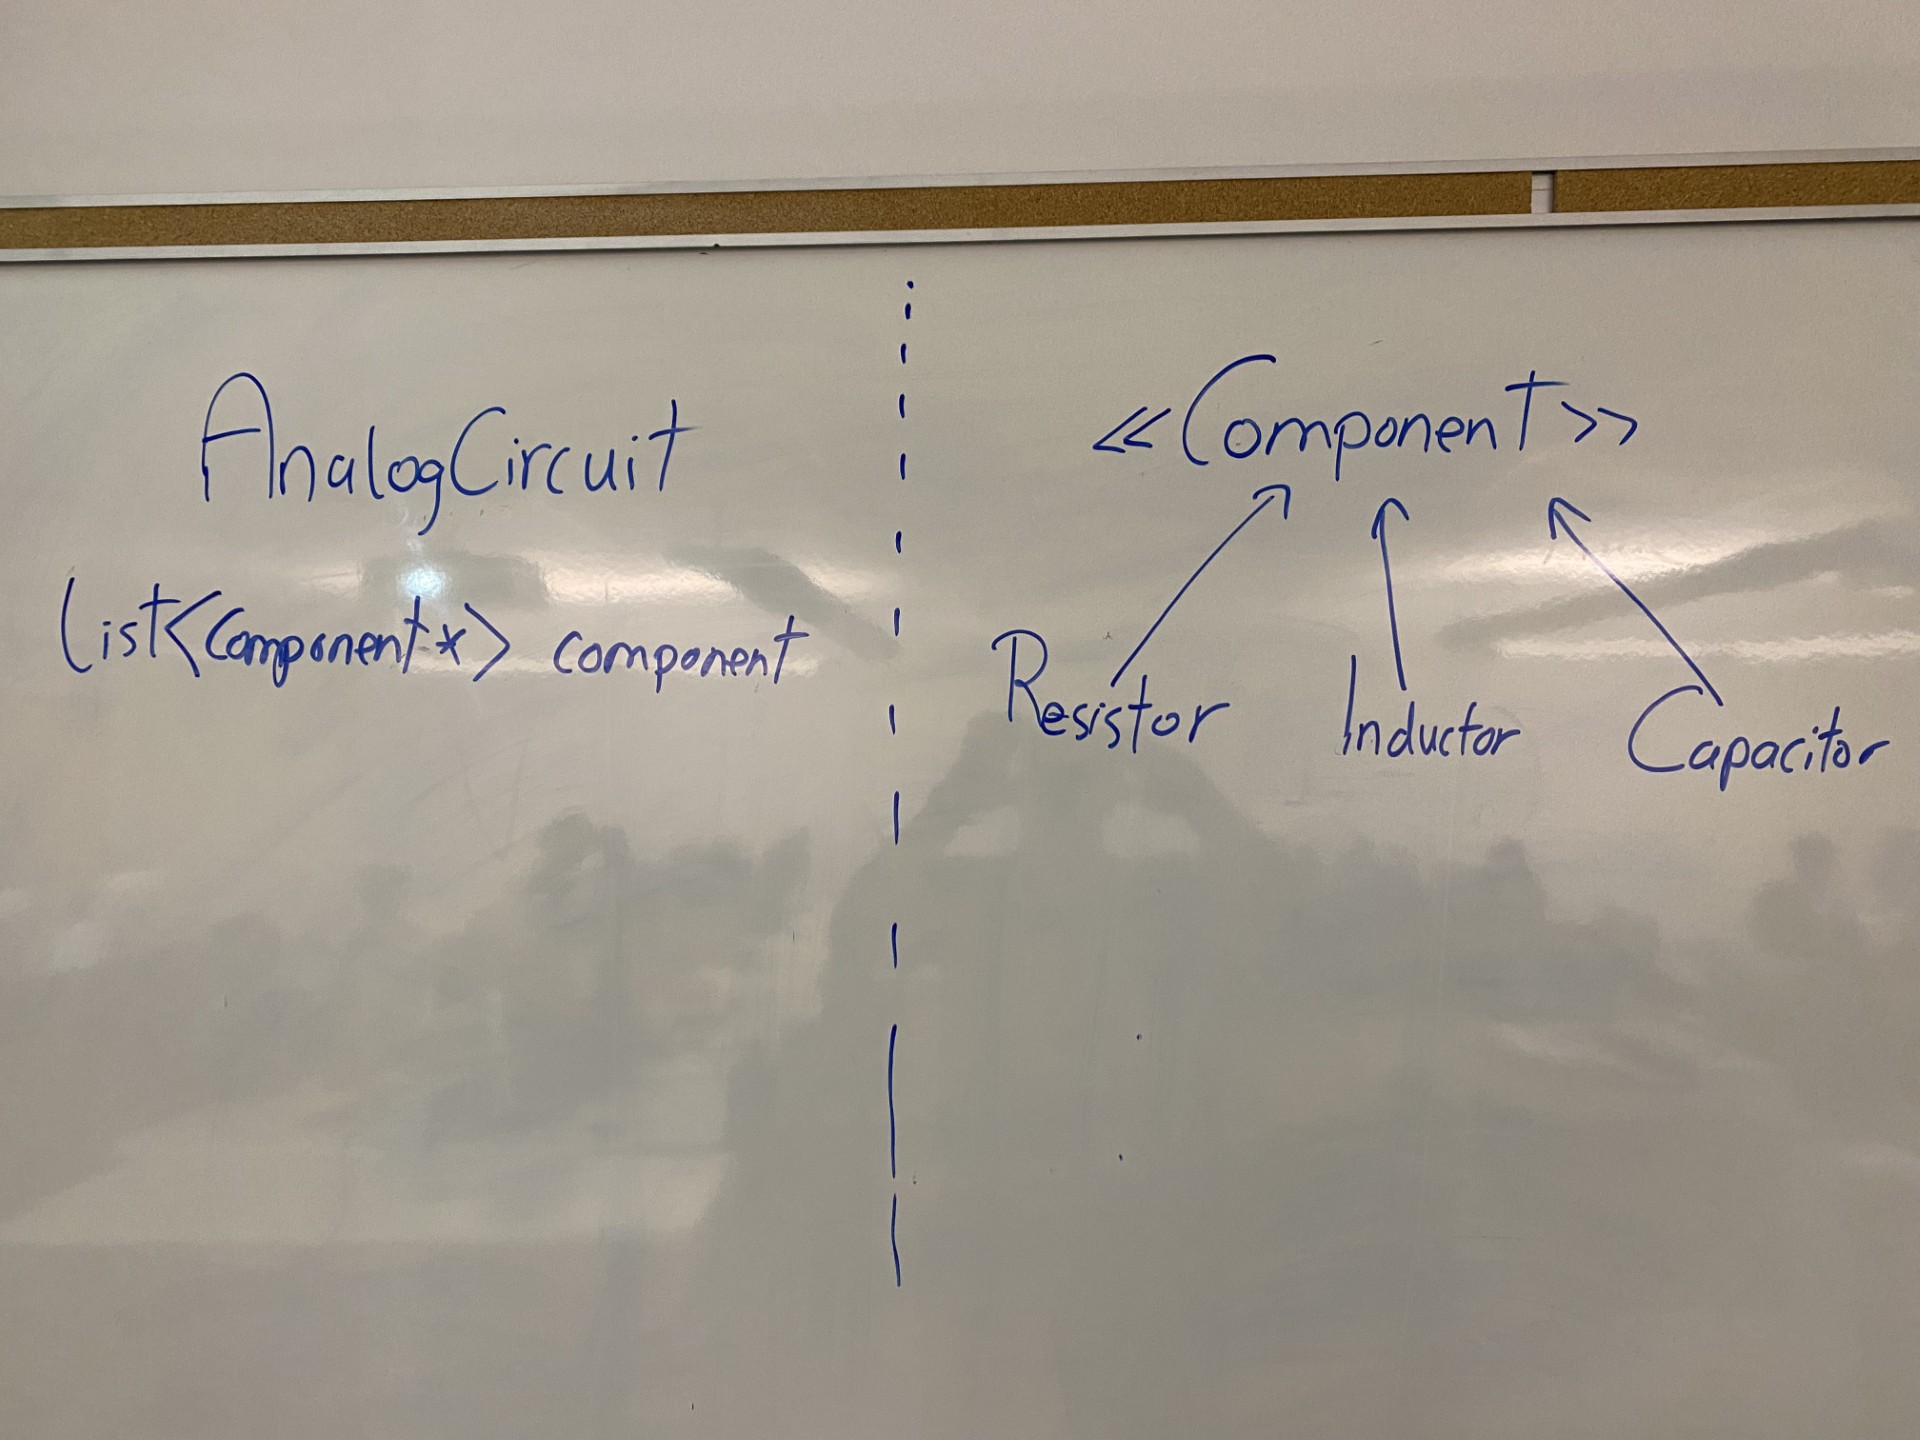 AnalogCircuit
List<Component*> component
<<Component>>
Resistor Inductor Capacitor